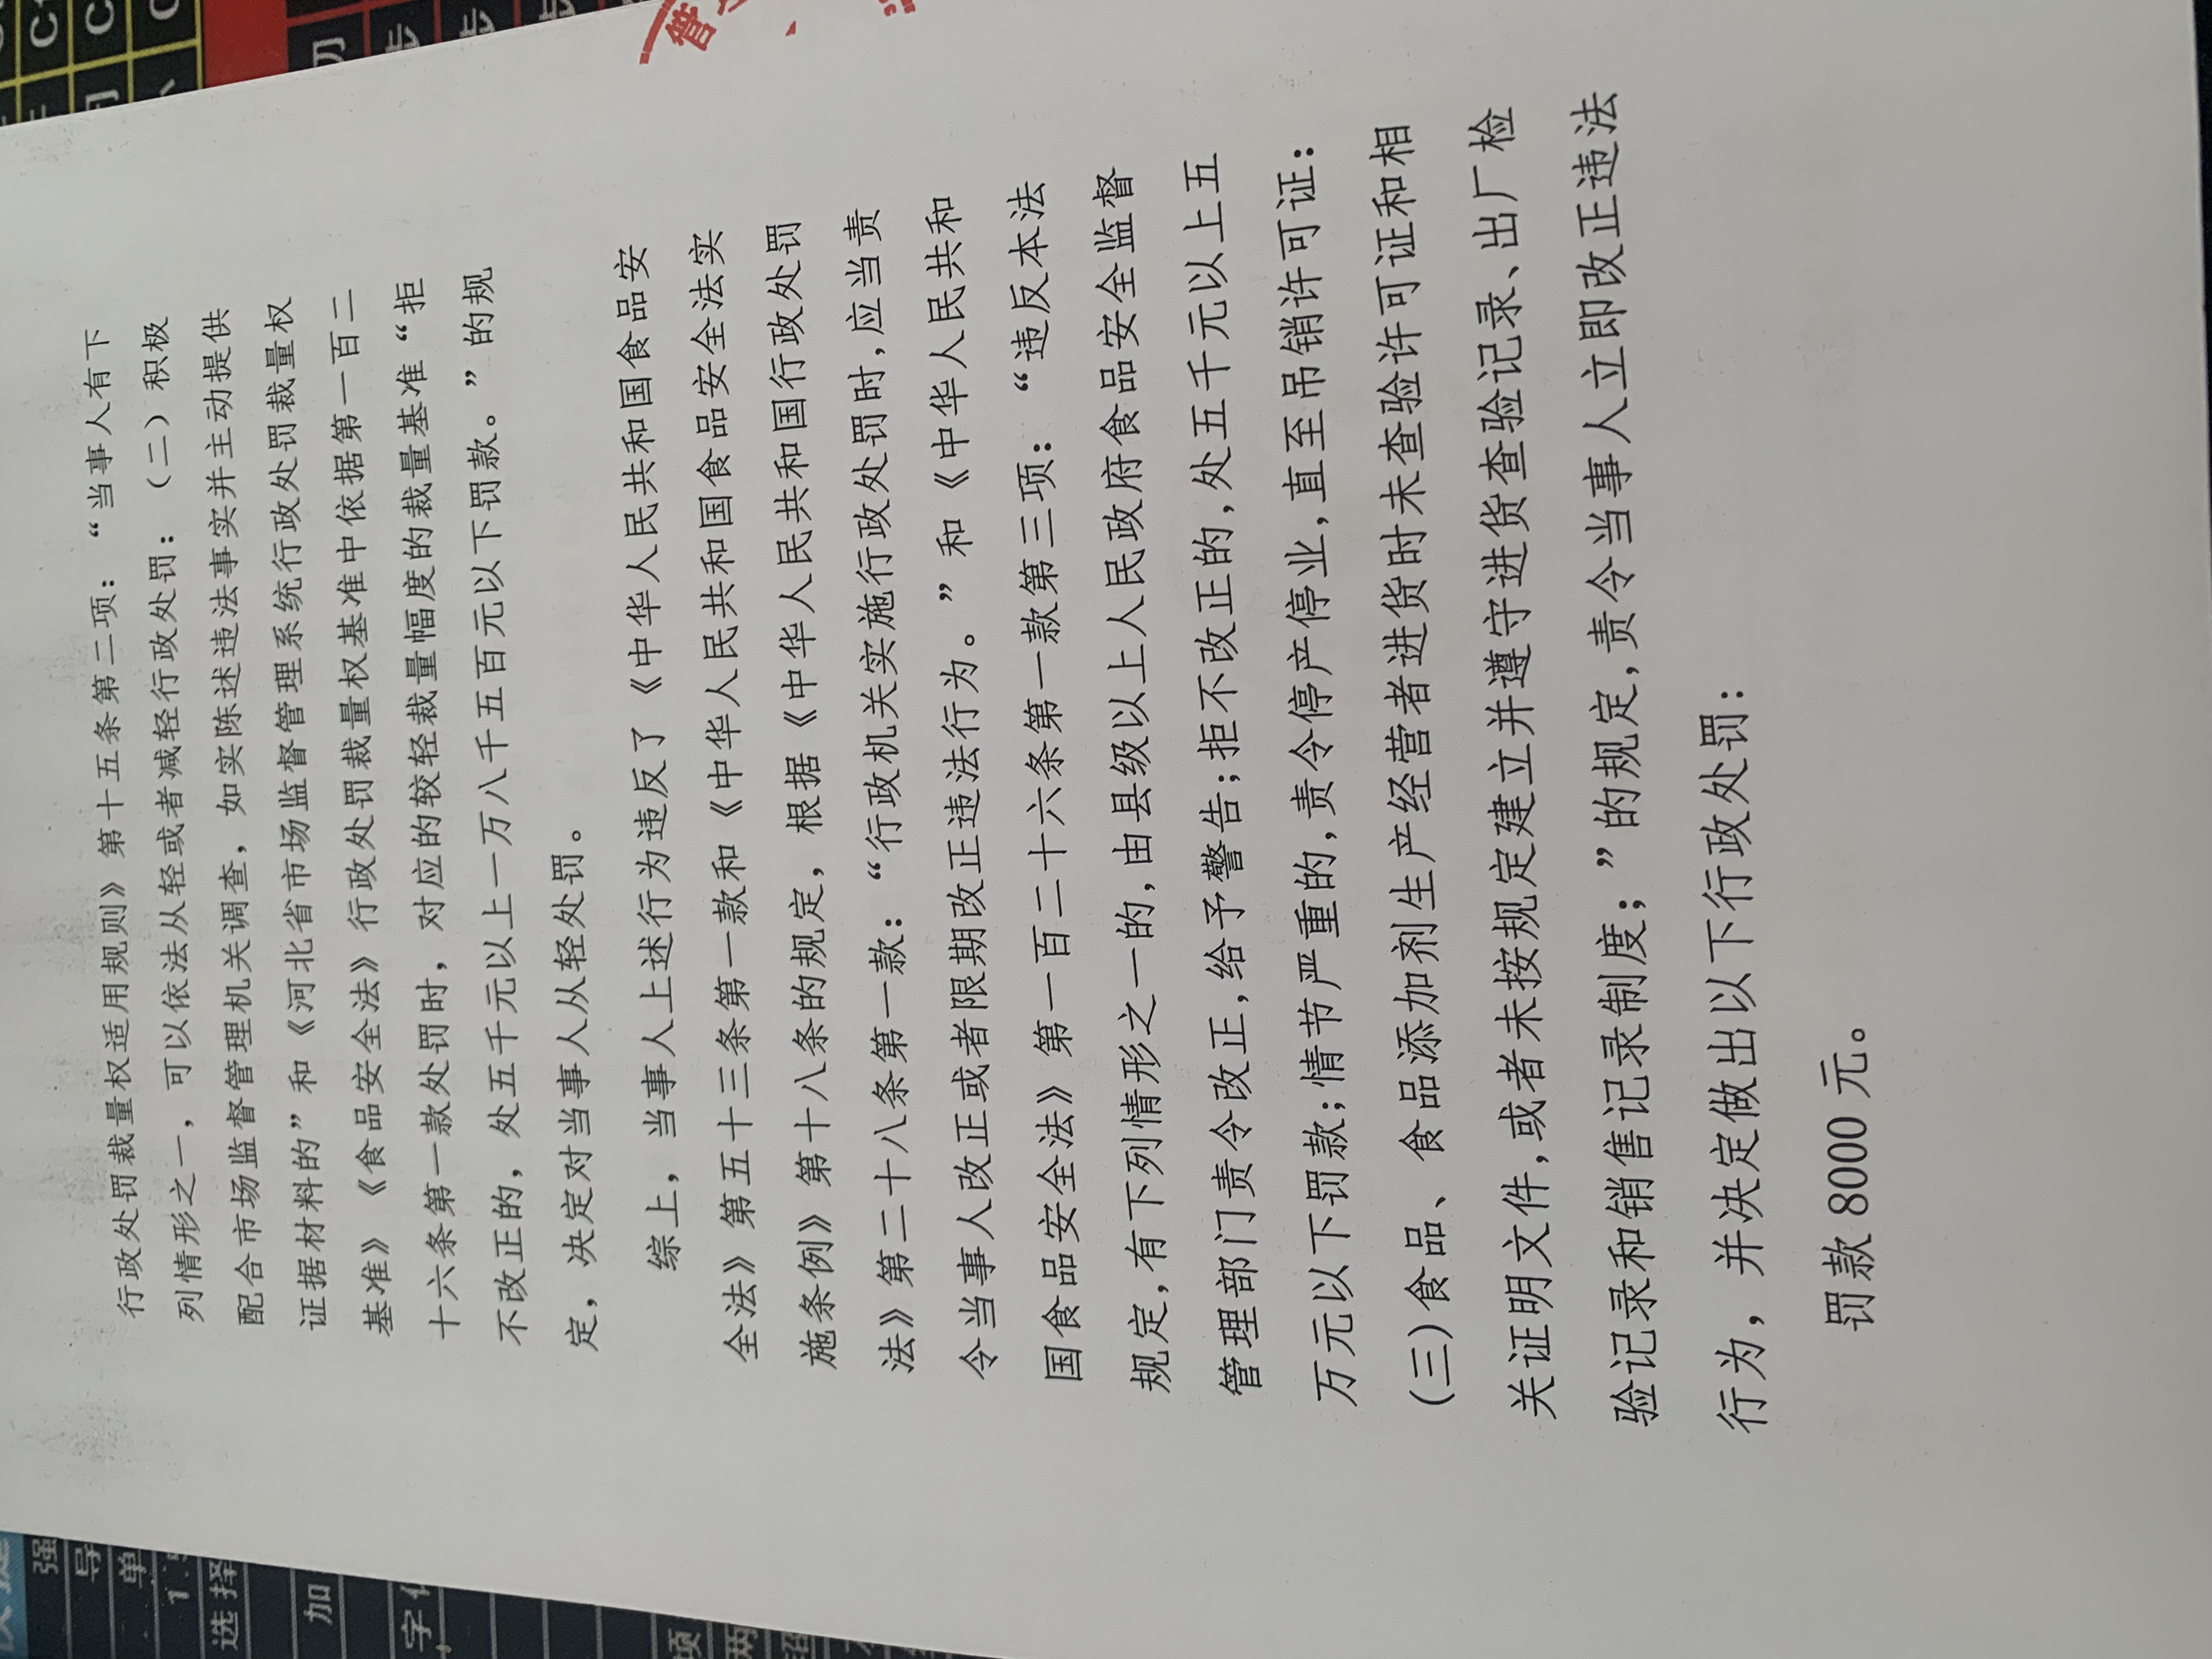 行政处罚裁量权适用规则》第十五条第二项：“当事人有下
列情形之一，可以依法从轻或者减轻行政处罚：（二）积极
配合市场监督管理机关调查，如实陈述违法事实并主动提供
证据材料的”和《河北省市场监督管理系统行政处罚裁量权
基准》《食品安全法》行政处罚裁量权基准中依据第一百二
十六条第一款处罚时，对应的较轻裁量幅度的裁量基准“拒
不改正的，处五千元以上一万八千五百元以下罚款。”的规
定，决定对当事人从轻处罚。
综上，当事人上述行为违反了《中华人民共和国食品安
全法》第五十三条第一款和《中华人民共和国食品安全法实
施条例》第十八条的规定，根据《中华人民共和国行政处罚
法》第二十八条第一款：“行政机关实施行政处罚时,应当责
令当事人改正或者限期改正违法行为。”和《中华人民共和
国食品安全法》第一百二十六条第一款第三项：“违反本法
规定,有下列情形之一的,由县级以上人民政府食品安全监督
管理部门责令改正,给予警告;拒不改正的,处五千元以上五
万元以下罚款;情节严重的,责令停产停业,直至吊销许可证:
(三)食品、食品添加剂生产经营者进货时未查验许可证和相
关证明文件,或者未按规定建立并遵守进货查验记录、出厂检
验记录和销售记录制度;”的规定,责令当事人立即改正违法
行为，并决定做出以下行政处罚：
罚款 8000 元。
管
强
导
单
选择
加
字
项
两
切
步
步
步